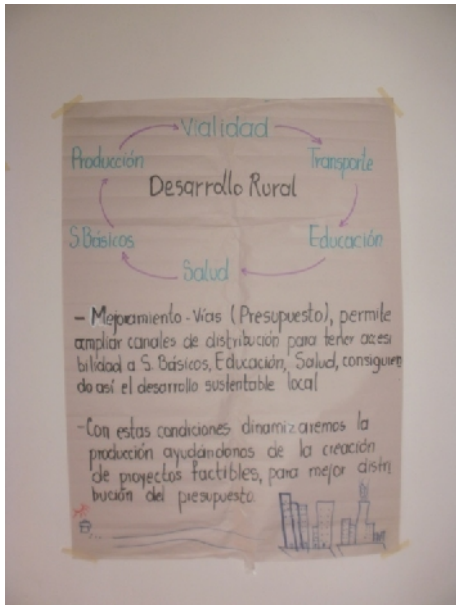 Vialidad
Producción
Transporte
Desarrollo Rural
S.Básicos
Educación
Salud
- Mejoramiento-Vías (Presupuesto), permite
ampliar canales de distribución para tener accesi
bilidad a S. Básicos, Educación, Salud, consiguien
do así el desarrollo sustentable local
-Con estas condiciones dinamizaremos la
producción ayudándonos de la creación
de proyectos factibles, para mejor distri
bución del presupuesto.